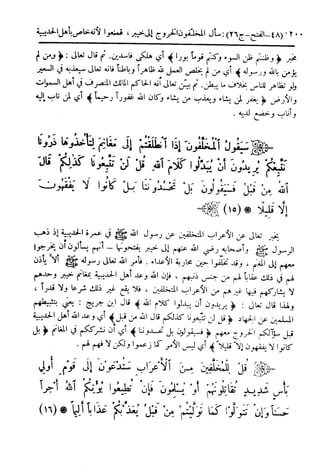 ٢٠٠ (٤٨ - الفتح - ج٢٦) : سأل المخلفون الخروج إلى خيبر ، فمنعوا لأنه خاص بأهل الحديبية
بخير ﴿ وظننتم ظن السوء وكنتم قوماً بورا ﴾ أي هلكى فاسدين. ثم قال تعالى : ﴿ ومن لم
يؤمن بالله ورسوله ﴾ أي من لم يخلص العمل لله ظاهراً وباطناً فإنه تعالى سيعذبه في السعير
ولو تظاهر للناس بخلاف ما يبطن. ثم بيّن تعالى أنه الحاكم المالك المتصرف في أهل السموات
والأرض ﴿ يغفر لمن يشاء ويعذب من يشاء وكان الله غفوراً رحيماً ﴾ أي لمن تاب إليه
وأناب وخضع لديه .
سَيَقُولُ الْمُخَلَّفُونَ إِذَا انطَلَقْتُمْ إِلَى مَغَانِمَ لِتَأْخُذُوهَا ذَرُونَا
نَتَّبِعْكُمْ يُرِيدُونَ أَن يُبَدِّلُوا كَلَامَ اللَّهِ قُل لَّن تَتَّبِعُونَا كَذَلِكُمْ قَالَ
اللَّهُ مِن قَبْلُ فَسَيَقُولُونَ بَلْ تَحْسُدُونَنَا بَلْ كَانُوا لَا يَفْقَهُونَ
إِلَّا قَلِيلًا (١٥)
يخبر تعالى عن الأعراب المتخلفين عن رسول الله ﷺ في عمرة الحديبية إذ ذهب
الرسول ﷺ وأصحابه رضي الله عنهم إلى خيبر يفتحونها - أنهم يسألون أن يخرجوا
معهم إلى المغنم ، وقد تخلفوا حين محاربة الأعداء . فأمر الله تعالى رسوله ﷺ ألا يأذن
لهم في ذلك عقاباً لهم من جنس ذنبهم . فإن الله وعد أهل الحديبية بمغانم خيبر وحدهم
لا يشاركهم فيها غيرهم من الأعراب المتخلفين ، فلا يقع غير ذلك شرعاً ولا قدراً ،
ولهذا قال تعالى : ﴿ يريدون أن يبدلوا كلام الله ﴾ قال ابن جريج : يعني بتثبيطهم
المسلمين عن الجهاد ﴿ قل لن تتبعونا كذلكم قال الله من قبل ﴾ أي وعد الله أهل الحديبية
قبل سؤالكم الخروج معهم ﴿ فسيقولون بل تحسدوننا ﴾ أي أن نشرككم في المغانم ﴿ بل
كانوا لا يفقهون إلا قليلاً ﴾ أي ليس الأمر كما زعموا ولكن لا فهم لهم .
قُل لِّلْمُخَلَّفِينَ مِنَ الْأَعْرَابِ سَتُدْعَوْنَ إِلَى قَوْمٍ أُولِي
بَأْسٍ شَدِيدٍ تُقَاتِلُونَهُمْ أَوْ يُسْلِمُونَ فَإِن تُطِيعُوا يُؤْتِكُمُ اللَّهُ أَجْرًا
حَسَنًا وَإِن تَتَوَلَّوْا كَمَا تَوَلَّيْتُم مِّن قَبْلُ يُعَذِّبْكُمْ عَذَابًا أَلِيمًا (١٦)